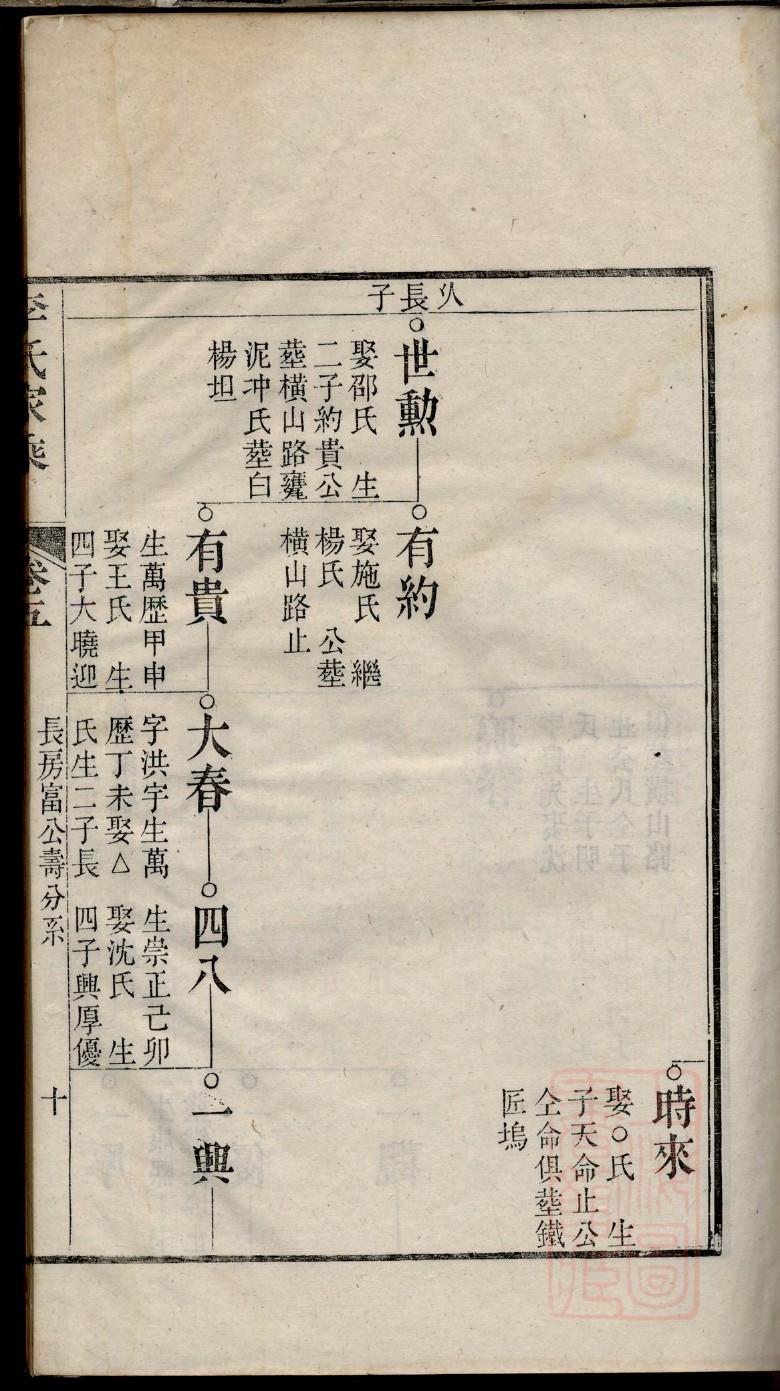 時來
娶○氏　生
子天命止公
仝命俱塟鐵
匠塢
乆長子
世勲
娶邵氏　生
二子約貴公
塟橫山路蘢
泥冲氏塟白
楊坦
有約
娶施氏　繼
楊氏　公塟
橫山路止
有貴
生萬歷甲申
娶王氏　生
四子大曉迎
大春
字洪宇生萬
歷丁未娶△
氏生二子長
四八
生崇正己卯
娶沈氏　生
四子興厚優
一興
李氏家乘
卷五
長房富公壽分系
十